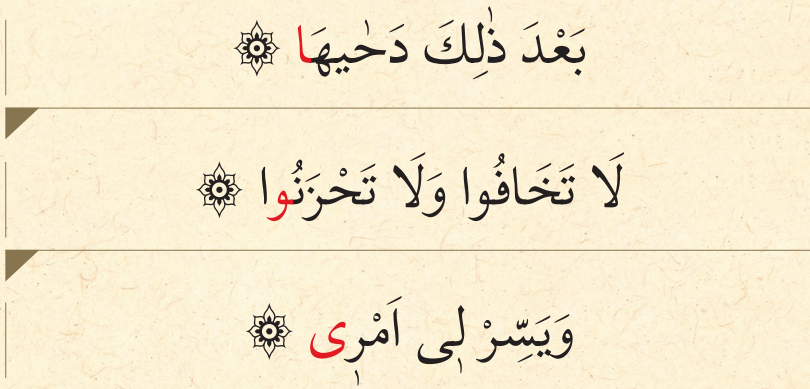 بَعْدَ ذٰلِكَ دَحٰيهَا
لَا تَخَافُوا وَلَا تَحْزَنُوا
وَيَسِّرْ لٖى اَمْرٖى